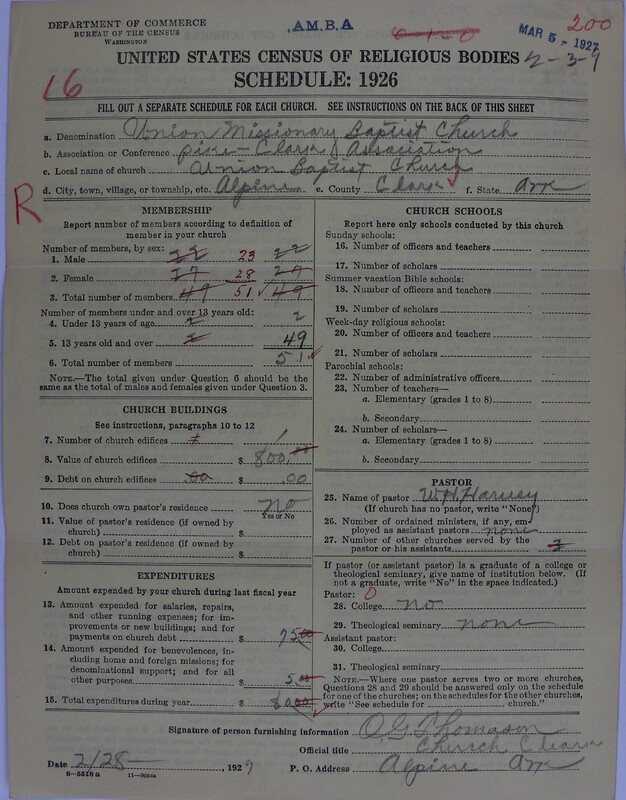 DEPARTMENT OF COMMERCE
BUREAU OF THE CENSUS
WASHINGTON
A.M.B.A
MAR 5 - 1927
200
2-3-9
UNITED STATES CENSUS OF RELIGIOUS BODIES
SCHEDULE: 1926
16
FILL OUT A SEPARATE SCHEDULE FOR EACH CHURCH. SEE INSTRUCTIONS ON THE BACK OF THIS SHEET
a. Denomination Union Missionary Baptist Church
b. Association or Conference Pike-Clark Association
c. Local name of church Union Baptist Church
d. City, town, village, or township, etc. Alpine e. County Clark f. State Ark
R
MEMBERSHIP
Report number of members according to definition of
member in your church
Number of members, by sex:
1. Male 22 23 22
2. Female 27 28 27
3. Total number of members 49 51 49
Number of members under and over 13 years old:
4. Under 13 years of age 2 2
5. 13 years old and over 49
6. Total number of members 51
NOTE.—The total given under Question 6 should be the
same as the total of males and females given under Question 3.
CHURCH BUILDINGS
See instructions, paragraphs 10 to 12
7. Number of church edifices 1 1
8. Value of church edifices $ 800.00
9. Debt on church edifices .00 $ .00
10. Does church own pastor's residence no
Yes or No
11. Value of pastor's residence (if owned by
church) $
12. Debt on pastor's residence (if owned by
church) $
EXPENDITURES
Amount expended by your church during last fiscal year
13. Amount expended for salaries, repairs,
and other running expenses; for im-
provements or new buildings; and for
payments on church debt $ 75.00
14. Amount expended for benevolences,
including home and foreign missions; for
denominational support; and for all
other purposes $ 5.00
15. Total expenditures during year $ 80.00
CHURCH SCHOOLS
Report here only schools conducted by this church
Sunday schools:
16. Number of officers and teachers
17. Number of scholars
Summer vacation Bible schools:
18. Number of officers and teachers
19. Number of scholars
Week-day religious schools:
20. Number of officers and teachers
21. Number of scholars
Parochial schools:
22. Number of administrative officers
23. Number of teachers—
a. Elementary (grades 1 to 8)
b. Secondary
24. Number of scholars—
a. Elementary (grades 1 to 8)
b. Secondary
PASTOR
25. Name of pastor W.H. Harvey
(If church has no pastor, write "None")
26. Number of ordained ministers, if any, em-
ployed as assistant pastors none
27. Number of other churches served by the
pastor or his assistants 3
If pastor (or assistant pastor) is a graduate of a college or
theological seminary, give name of institution below. (If
not a graduate, write "No" in the space indicated.)
Pastor: 0
28. College no
29. Theological seminary none
Assistant pastor:
30. College
31. Theological seminary
NOTE.—Where one pastor serves two or more churches,
Questions 28 and 29 should be answered only on the schedule
for one of the churches; on the schedules for the other churches,
write "See schedule for ------ church."
Signature of person furnishing information O G Thomason
Official title Church Clerk
Date 2/28 , 1927 P. O. Address Alpine Ark
S-5518 a